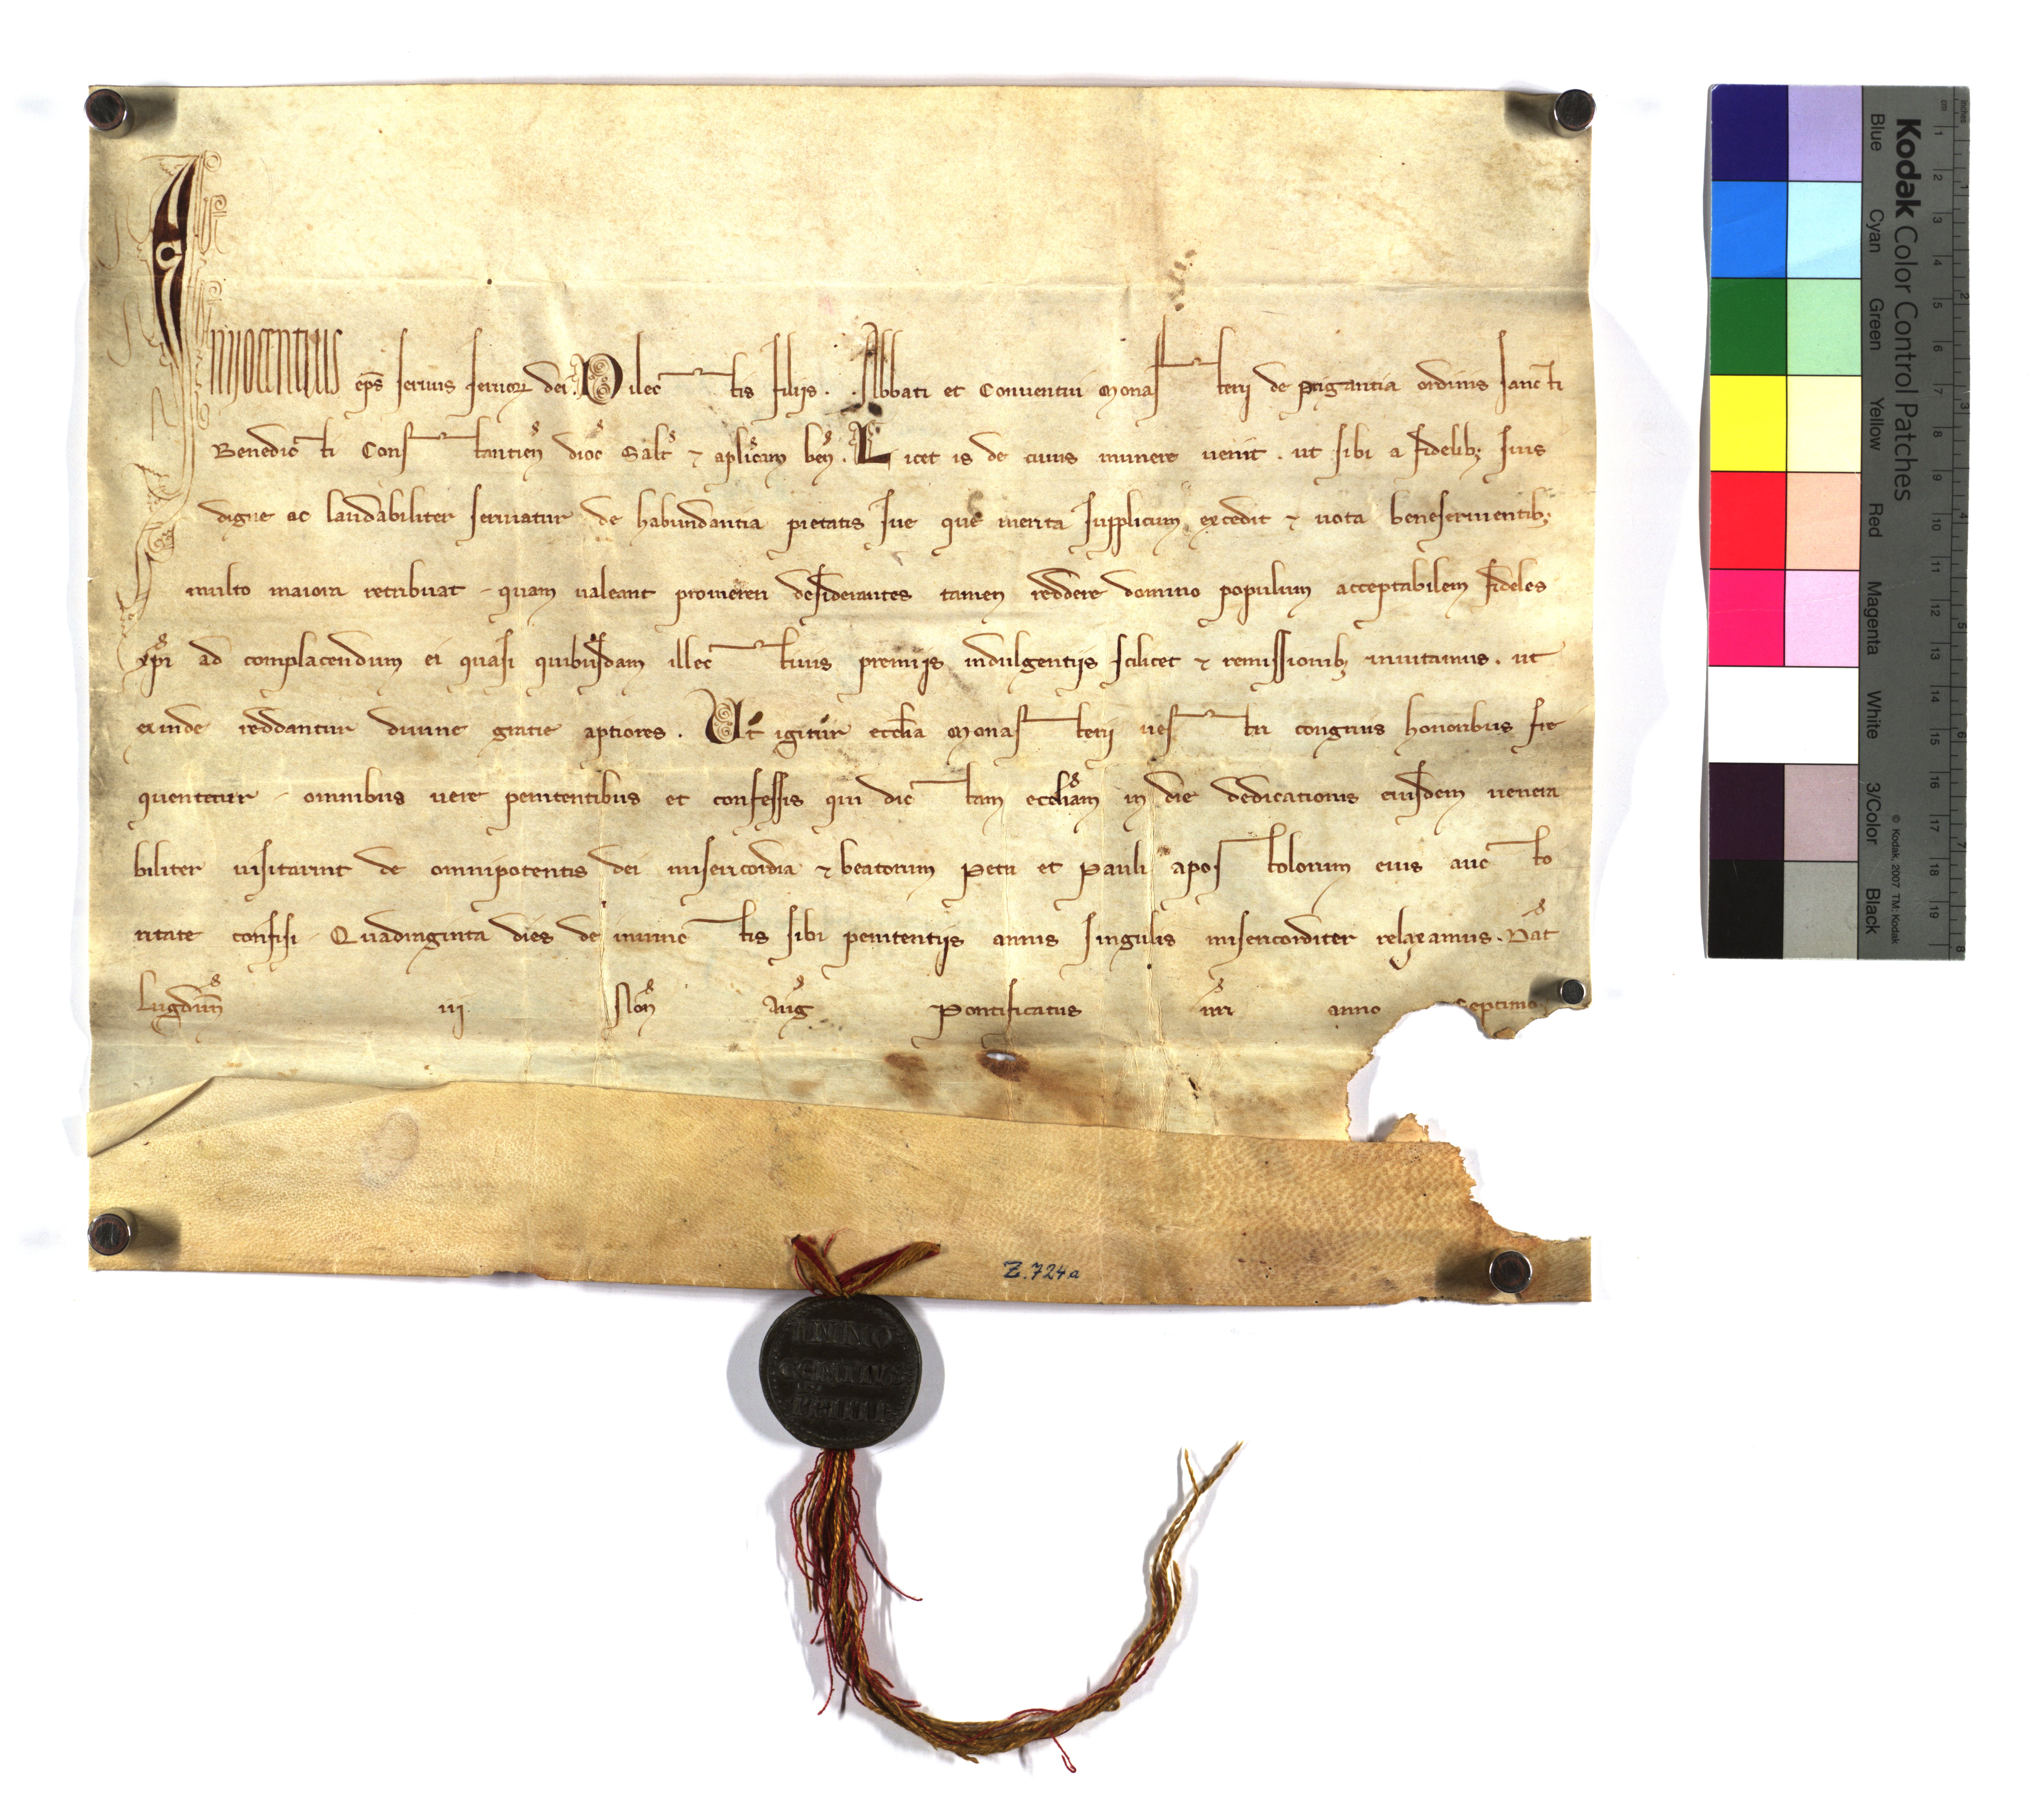 Innocentius ep̄s seruus seruoꝝ dei. Dilectis filijs. . Abbati et Conuentui Monasterij de Prigantia ordinis sancti
Benedicti Constantien̄ dioc̄ Salt̄ ⁊ aplicam ben̄. Licet is de cuius munere uenit. ut sibi a fidelibꝫ suis
digne ac laudabiliter seruiatur de habundantia pietatis sue que merita supplicum excedit ⁊ uota beneseruientibꝫ
multo maiora retribuat quam ualeant promereri desiderantes tamen reddere domino populum acceptabilem fideles
xp̄i ad complacendum ei quasi quibusdam illectiuis premijs indulgentijs scilicet ⁊ remissionibꝫ inuitamus. ut
exinde reddantur diuine gratie aptiores. Ut igitur ecclia Monasterij uestri congruis honoribus fre
quentetur omnibus uere penitentibus et confessis qui dictam eccliam in die dedicationis eiusdem uenera
biliter uisitarint de omnipotentis dei misericordia ⁊ beatorum Petri et Pauli apostolorum eius aucto
ritate confisi Quadraginta dies de iniunctis sibi penitentijs annis singulis misericorditer relaxamus. Dat̄
Lugdun̄ iij Non̄ Auḡ Pontificatus nr̄i anno Septimo.
Z. 724a
INNO
CENTIVS
PP IIII
Kodak Color Control Patches
© Kodak, 2007 TM: Kodak
Blue Cyan Green Yellow Red Magenta White 3/Color Black
inches 1 2 3 4 5 6 7 8
cm 1 2 3 4 5 6 7 8 9 10 11 12 13 14 15 16 17 18 19